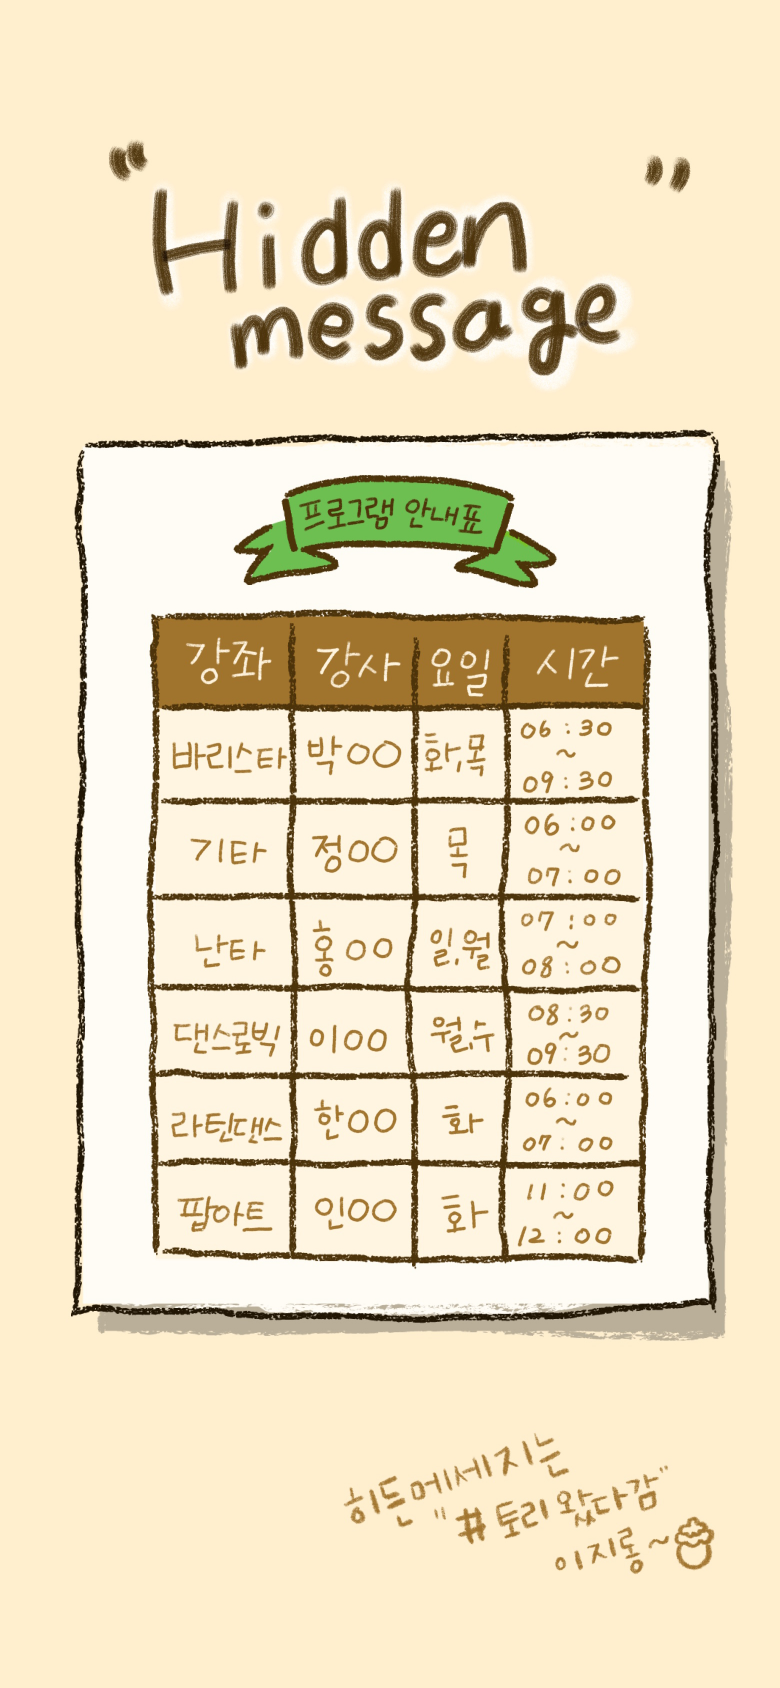 " Hidden "
message
프로그램 안내표
강좌 강사 요일 시간
바리스타 박○○ 화,목 06:30 ~ 09:30
기타 정○○ 목 06:00 ~ 07:00
난타 홍○○ 일,월 07:00 ~ 08:00
댄스로빅 이○○ 월,수 08:30 ~ 09:30
라틴댄스 한○○ 화 06:00 ~ 07:00
팝아트 인○○ 화 11:00 ~ 12:00
히든메세지는
"#토리왔다감"
이지롱~